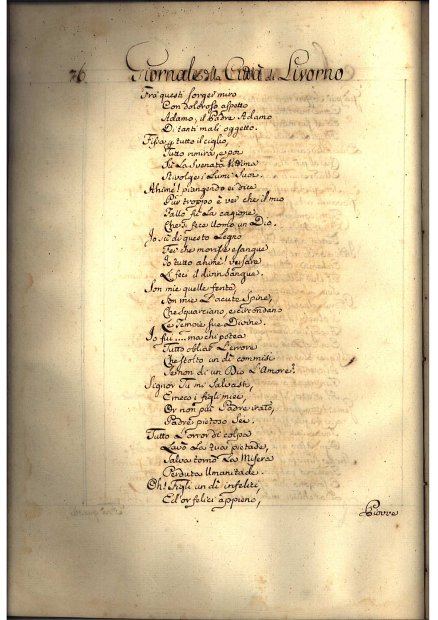 76 Giornale della Città di Livorno
Fra questi sorger miro
Con doloroso aspetto
Adamo, il Padre Adamo
Di tanti mali oggetto.
Fissa tutto il ciglio,
Tutto rimira, e poi
Su La Svenata Vittima
Rivolge i Lumi Suoi.
Ahimè! piangendo ei dice
Pur troppo è ver che il mio
Fallo fù La cagione,
Che si fece Uomo un Dio.
Io fù di questo Legno
Fei che morisse esangue
Io tutto ahimè! versare
Li feci il divin Sangue.
Son mie quelle ferite,
Son mie L'acute Spine,
Che squarciano, e circondano
Le Tempie sue Divine.
Io fui .... ma chi potea
Tutto obliar L'errore
Che stolto un dì commisi
Se non di un Dio L'Amore?
Signor Tu mi Salvasti,
E meco i figli miei,
Or non più Padre irato,
Padre pietoso Sei.
Tutto L'orror di colpa
Lavò La tua pietade,
Salva tornò La Misera
Perduta Umanitade.
Oh! Figli un dì infelici,
Ed or felici appieno,
Piovve